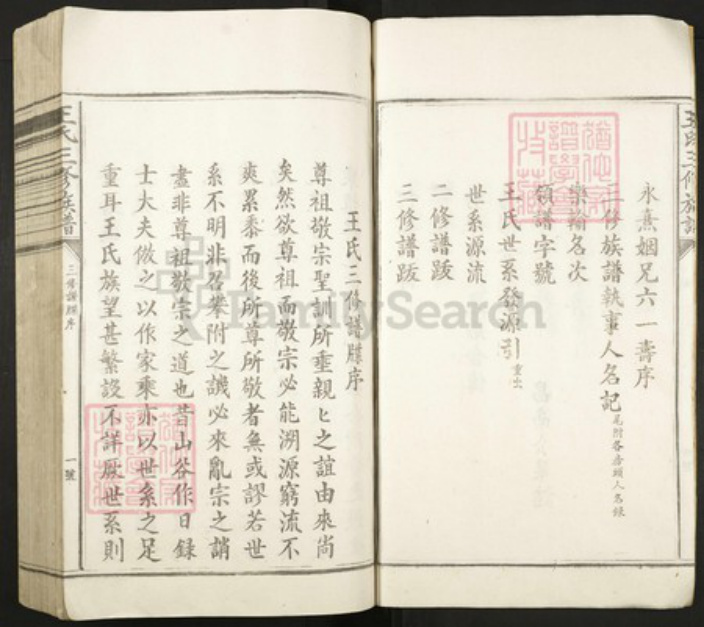 王氏三修族譜
永熹姻兄六一壽序
三修族譜執事人名記尾附各房頭人名錄
樂輸名次
領譜字號
王氏世系發源引重出
世系源流
二修譜跋
三修譜跋
王氏三修譜牒序
尊祖敬宗聖訓所垂親ヒ之誼由來尚
矣然欲尊祖而敬宗必能溯源窮流不
爽累黍而後所尊所敬者無或謬若世
系不明非召攀附之譏必來亂宗之誚
盡非尊祖敬宗之道也昔山谷作日錄
士大夫倣之以作家乘亦以世系之足
重耳王氏族望甚繁設不詳厥世系則
王氏三修族譜
三修譜牒序
一號
FamilySearch